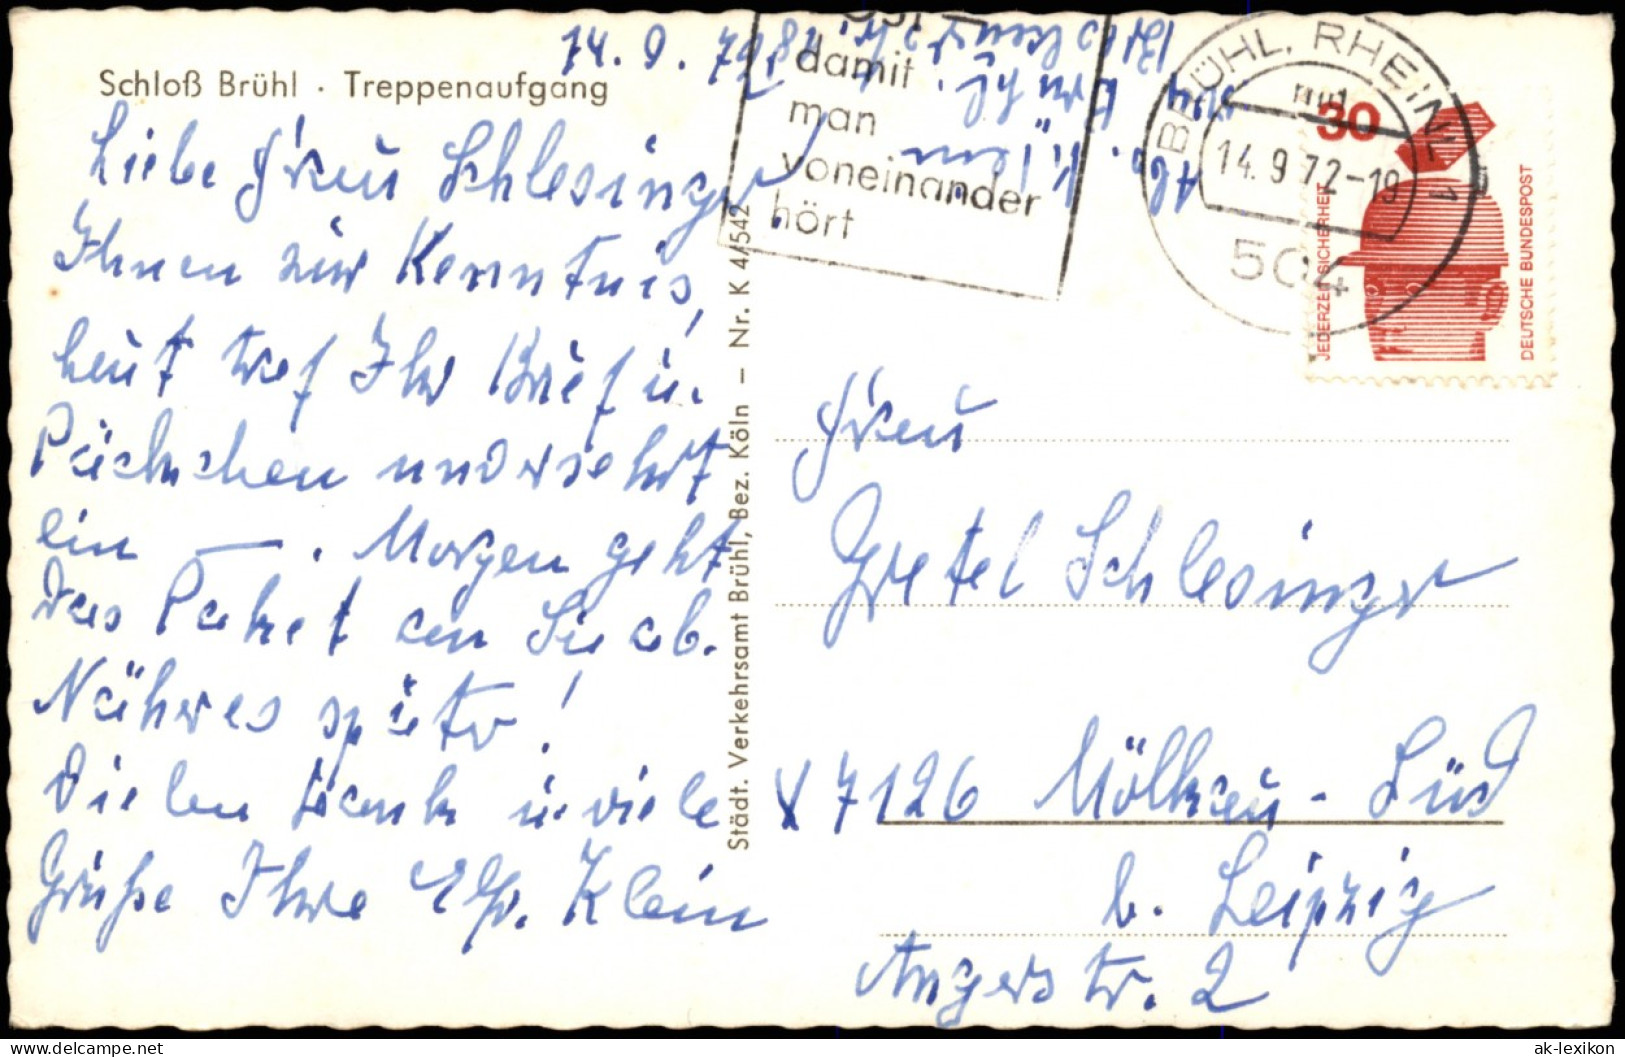 Schloß Brühl · Treppenaufgang
14. 9. 72
Liebe Frau Schlesinger,
Ihnen zur Kenntnis,
heut traf Ihr Brief u.
Päckchen unversehrt
ein — . Morgen geht
das Paket an Sie ab.
Näheres später!
Vielen Dank u. viele
Grüße Ihre Elfr. Klein
Städt. Verkehrsamt Brühl, Bez. Köln – Nr. K 4/542
Abs.
Klein
Brühl.
damit
man
voneinander
hört
BRÜHL, RHEINL 1
14.9.72-19
504
30
JEDERZEIT SICHERHEIT
DEUTSCHE BUNDESPOST
Frau
Gretel Schlesinger
X 7126 Mölkau - Süd
b. Leipzig
Angerstr. 2
ak-lexikon
delcampe.net